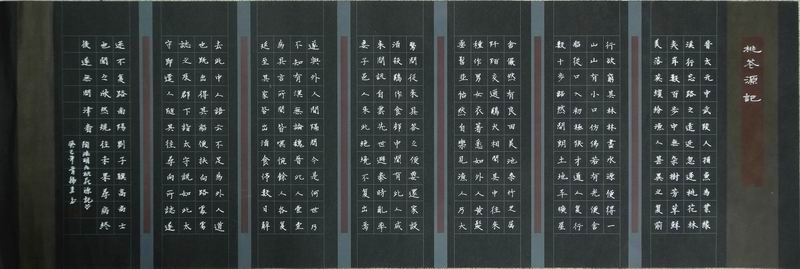 桃花源記
晉太元中武陵人捕魚為業緣
溪行忘路之遠近忽逢桃花林
夾岸數百步中無雜樹芳草鮮
美落英繽紛漁人甚異之復前
行欲窮其林林盡水源便得一
山山有小口仿佛若有光便舍
船從口入初極狹才通人復行
數十步豁然開朗土地平曠屋
舍儼然有良田美池桑竹之屬
阡陌交通雞犬相聞其中往來
種作男女衣著悉如外人黃髮
垂髫並怡然自樂見漁人乃大
驚問從來具答之便要還家設
酒殺雞作食村中聞有此人咸
來問訊自雲先世避秦時亂率
妻子邑人來此絕境不復出焉
遂與外人間隔問今是何世乃
不知有漢無論魏晉此人壹壹
為具言所聞皆嘆惋餘人各復
延至其家皆出酒食停數日辭
去此中人語云不足為外人道
也既出得其船便扶向路處處
誌之及郡下詣太守說如此太
守即遣人隨其往尋向所誌遂
迷不復路南陽劉子驥高尚士
也聞之欣然規往未果尋病終
後遂無問津者
陶淵明 桃花源記
癸巳年